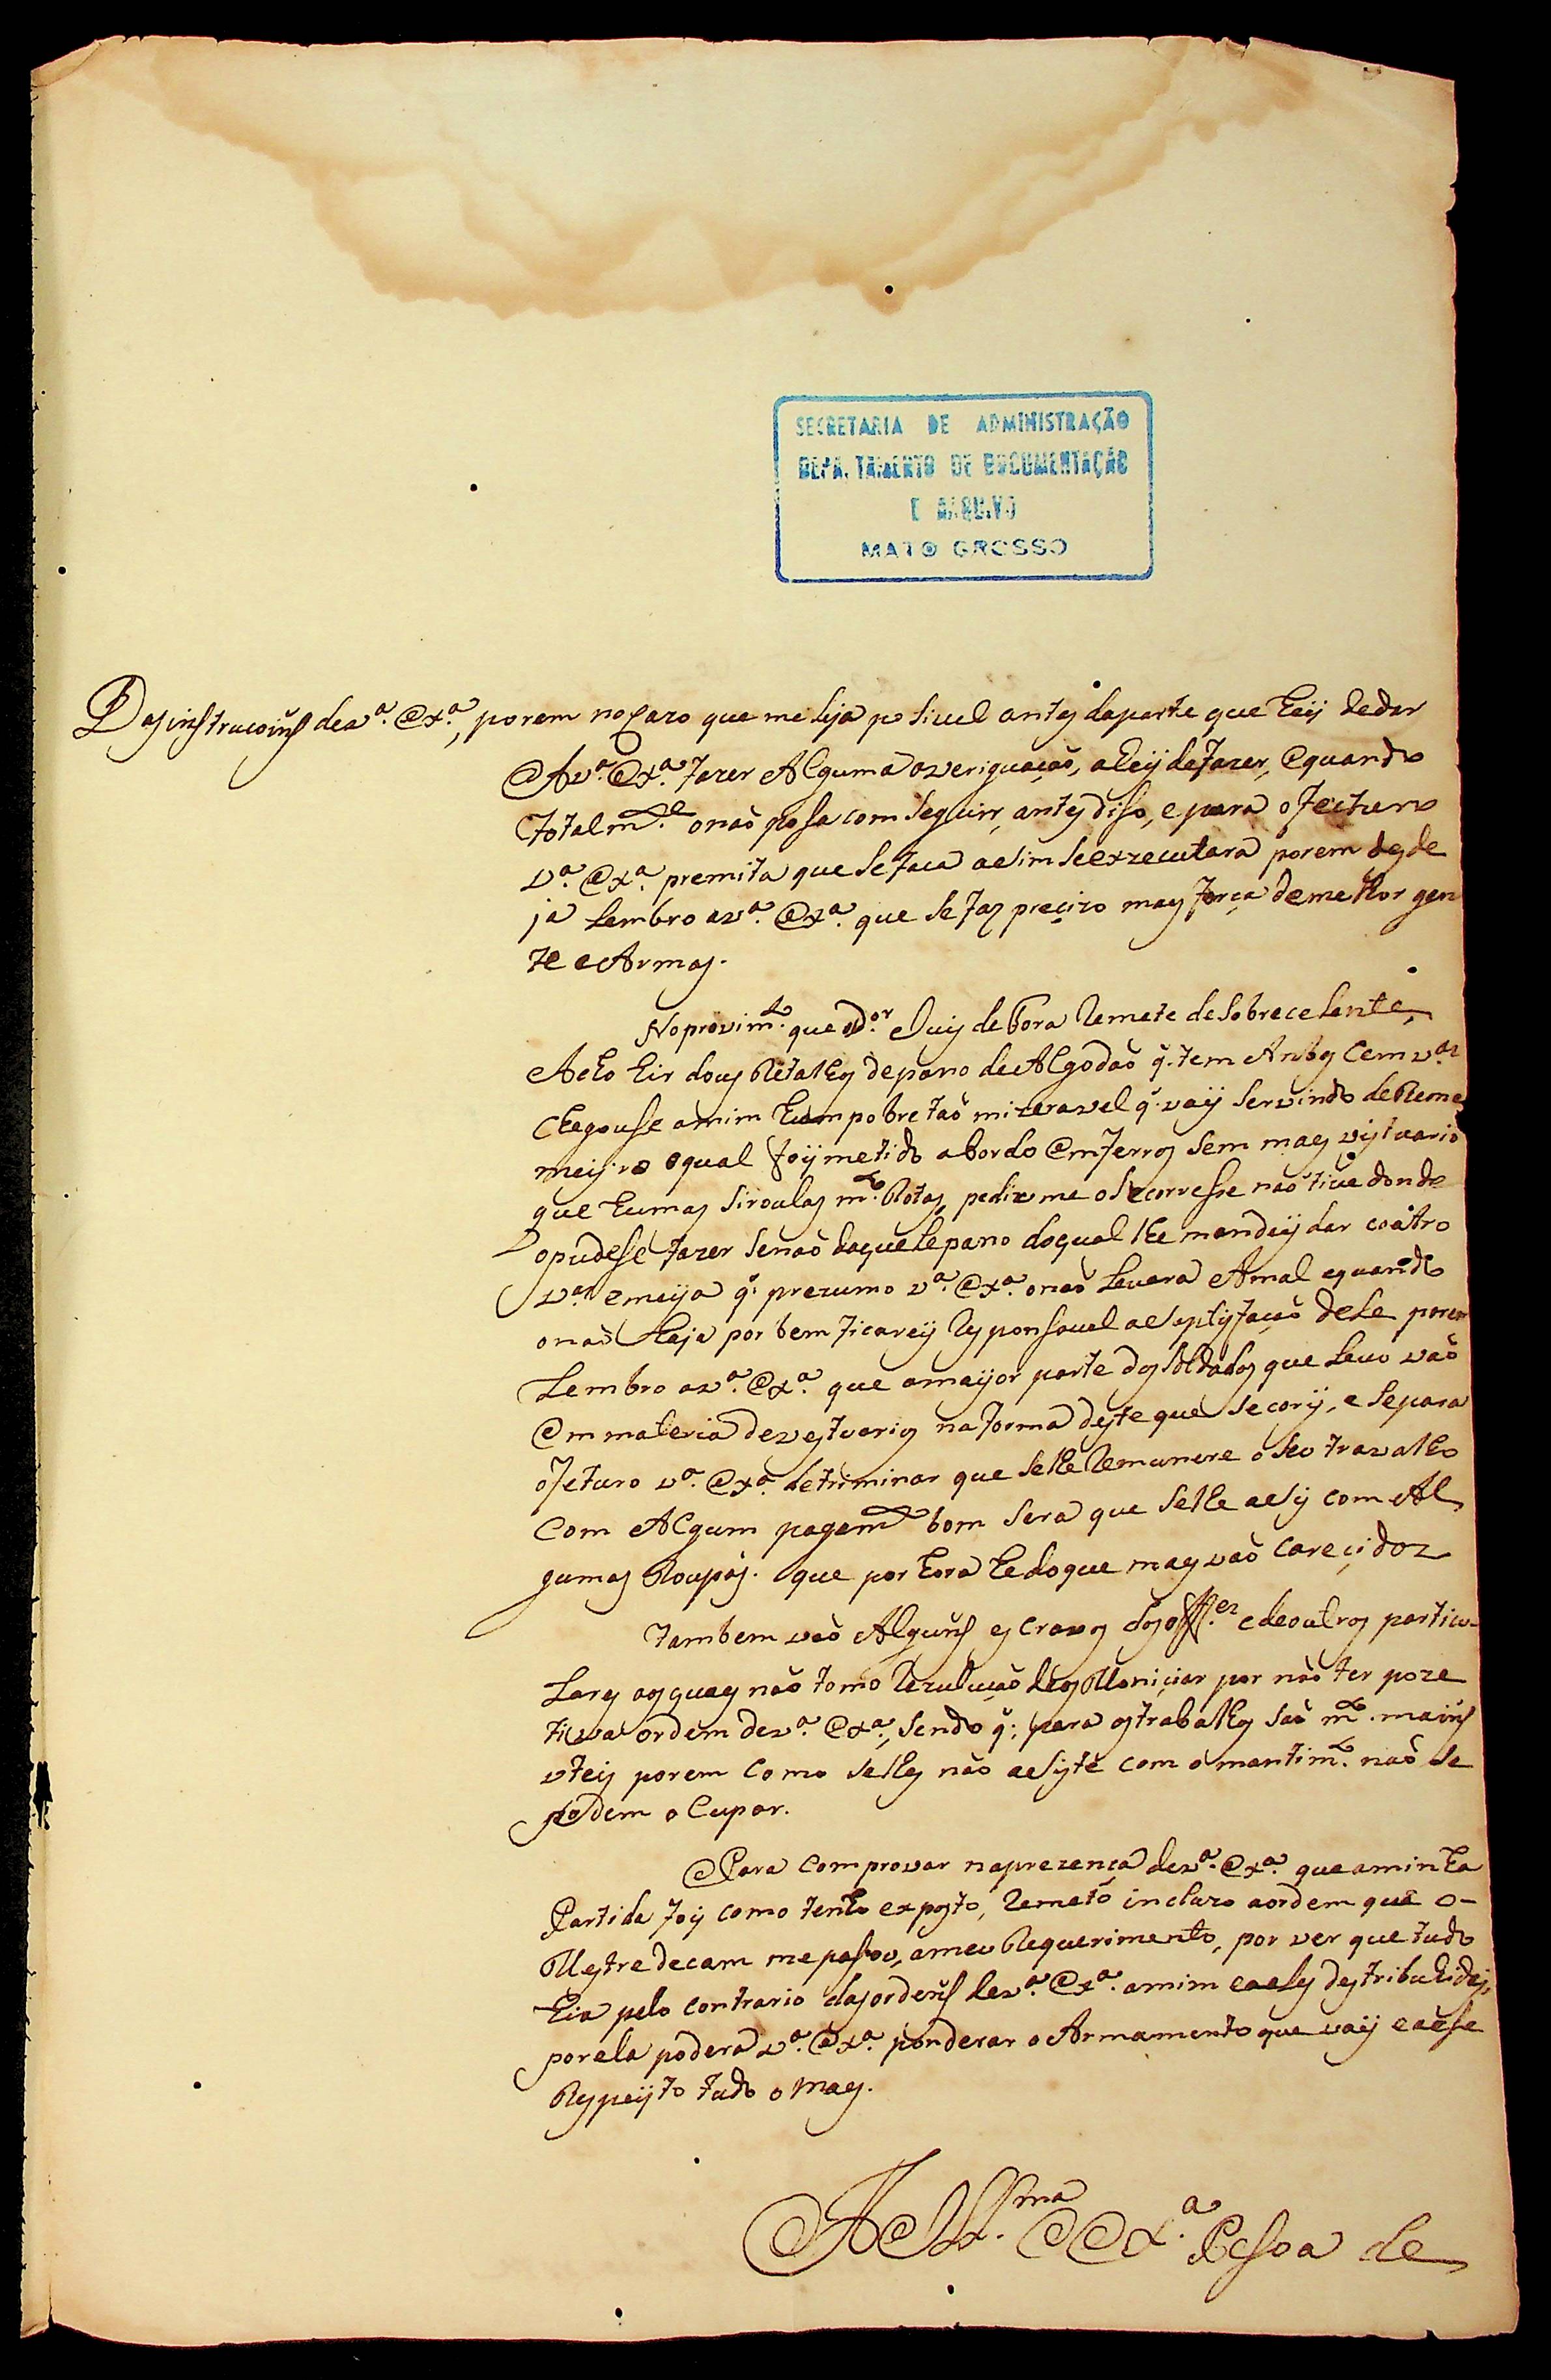 SECRETARIA DE ADMINISTRAÇÃO
DEPARTAMENTO DE DOCUMENTAÇÃO
E ARQUIVO
MATO GROSSO
Das instrucoiñs de v.ª Ex.ª, porem no cazo que me seja posivel antes da parte que heij de dar
A v.ª Ex.ª fazer Alguma averiguação, a heij de fazer, e quando
total m.te o não posa comseguir, antes diso, e para o fecturo
v.ª Ex.ª premita que se faca asim se exzecutara porem desde
já Lembro a v.ª Ex.ª que se faz preçizo mas força de melhor gen
te e Armas.
No provim.to que o D.or Juis de Fora Remete de sobrecelente,
Acho hir dous Retalhos de pano de Algodaõ q. tem Anbos Cem v.as
Chegouse a mim hum pobre taõ mizeravel q. vaij servindo de Reme
meijro o qual foij metido a bordo em ferros sem mas vistuario
que humas siroulas m.to Rotas, pediu me o secorresse naõ tive donde
o pudese fazer senaõ daquele pano do qual lhe mandeij dar coatro
v.as e meija q. prezumo v.ª Ex.ª o naõ Levara A mal e quando
o naõ haja por bem ficareij Responsavel a setisfaçaõ dele porem
Lembro a v.ª Ex.ª que a maijor parte dos soldados que Levo vaõ
Em materia de vestuarios na forma deste que secorij, e se para
o feturo v.ª Ex.ª detriminar que se lhe Remunere o seu travalho
Com Algum pagam.to bom sera que se lhe asij com Al
gumas Roupas. que por hora he do que mas vaõ Careçidos
tambem vaõ Alguñs escravos dos off.es e de outros particu-
Lares aos quaes naõ tomo Rezuluçaõ de os Moniçiar por naõ ter poze
tiva ordem de v.ª Ex.ª, sendo q. para os trabalhos saõ m.to maiñs
uteis porem Como se lhes não asiste com o mantim.to naõ se
podem o Cupar.
Para Comprovar na prezença de v.ª Ex.ª que a minha
Partida foij como tenho exposto, Remeto incluzo a ordem que o-
Mestre de cam me pasou, a meu Requerimento, por ver que tudo
hia pelo contrario das ordeñs de v.ª Ex.ª a mim e a eles destribuhidas,
por ela podera v.ª Ex.ª ponderar o Armamento que vaij e a ese
Respeijto tudo o mas.
A Ill.ma e Ex.ª Pesoa de